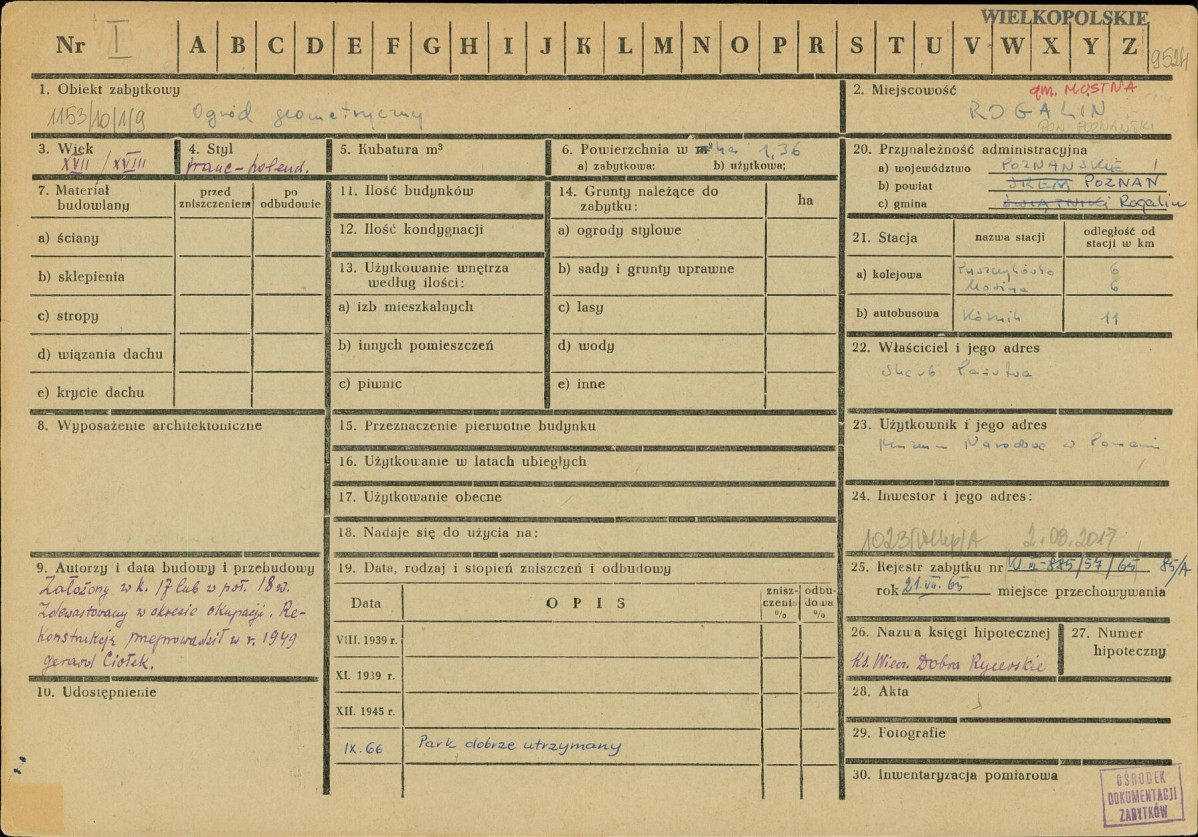 WIELKOPOLSKIE
Nr I A B C D E F G H I J K L M N O P R S T U V W X Y Z
9524
1. Obiekt zabytkowy
1153/10/1/9 Ogród geometryczny
2. Miejscowość gm. MOSINA
ROGALIN
POW. POZNAŃSKI
3. Wiek
XVII / XVIII
4. Styl
franc-holend.
5. Kubatura m³
6. Powierzchnia w m² ha 1,36
a) zabytkowa: b) użytkowa:
20. Przynależność administracyjna
a) województwo POZNAŃSKIE
b) powiat ŚREM POZNAŃ
c) gmina ŚWIĄTNIKI Rogalin
7. Materiał budowlany
przed zniszczeniem
po odbudowie
a) ściany
b) sklepienia
c) stropy
d) wiązania dachu
e) krycie dachu
11. Ilość budynków
12. Ilość kondygnacji
13. Użytkowanie wnętrza
według ilości:
a) izb mieszkalnych
b) innych pomieszczeń
c) piwnic
14. Grunty należące do
zabytku:
ha
a) ogrody stylowe
b) sady i grunty uprawne
c) lasy
d) wody
e) inne
21. Stacja
nazwa stacji
odległość od
stacji w km
a) kolejowa Puszczykówko 6
Mosina 6
b) autobusowa Kórnik 11
22. Właściciel i jego adres
Skarb Państwa
8. Wyposażenie architektoniczne
15. Przeznaczenie pierwotne budynku
16. Użytkowanie w latach ubiegłych
17. Użytkowanie obecne
18. Nadaje się do użycia na:
23. Użytkownik i jego adres
Muzeum Narodowe w Poznaniu
24. Inwestor i jego adres:
1023/Wlkp/A 2.08.2017
9. Autorzy i data budowy i przebudowy
Założony w k. 17 lub w poł. 18 w.
Zdewastowany w okresie okupacji. Re-
konstrukcję przeprowadził w r. 1949
gerard Ciołek.
10. Udostępnienie
19. Data, rodzaj i stopień zniszczeń i odbudowy
Data
OPIS
znisz-
czenia
%
odbu-
dowa
%
VIII. 1939 r.
XI. 1939 r.
XII. 1945 r.
IX. 66 Park dobrze utrzymany
25. Rejestr zabytku nr W.III-885/57/65 85/A
rok 21.VII.65 miejsce przechowywania
26. Nazwa księgi hipotecznej
Ks. Wiecz. Dobra Rycerskie
27. Numer
hipoteczny
28. Akta
29. Fotografie
30. Inwentaryzacja pomiarowa
OŚRODEK
DOKUMENTACJI
ZABYTKÓW